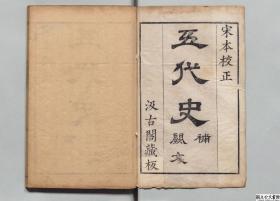 宋本校正
五代史補
闕文
汲古閣藏板